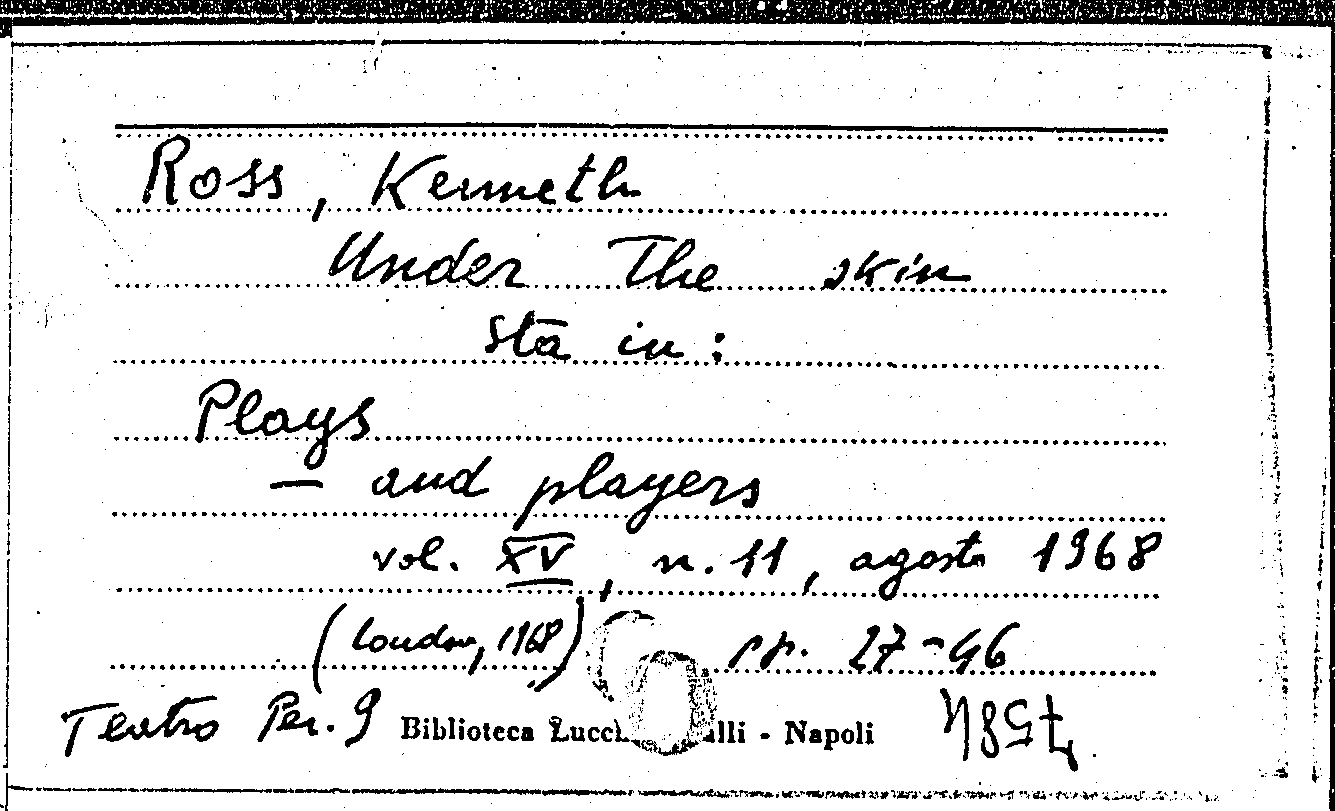 Ross, Kenneth
Under The skin
Sta in:
Plays
— and players
vol. XV, n. 11, agosto 1968
(London, 1968) pp. 27-46
Teatro Per. 9 Biblioteca Lucch lli - Napoli